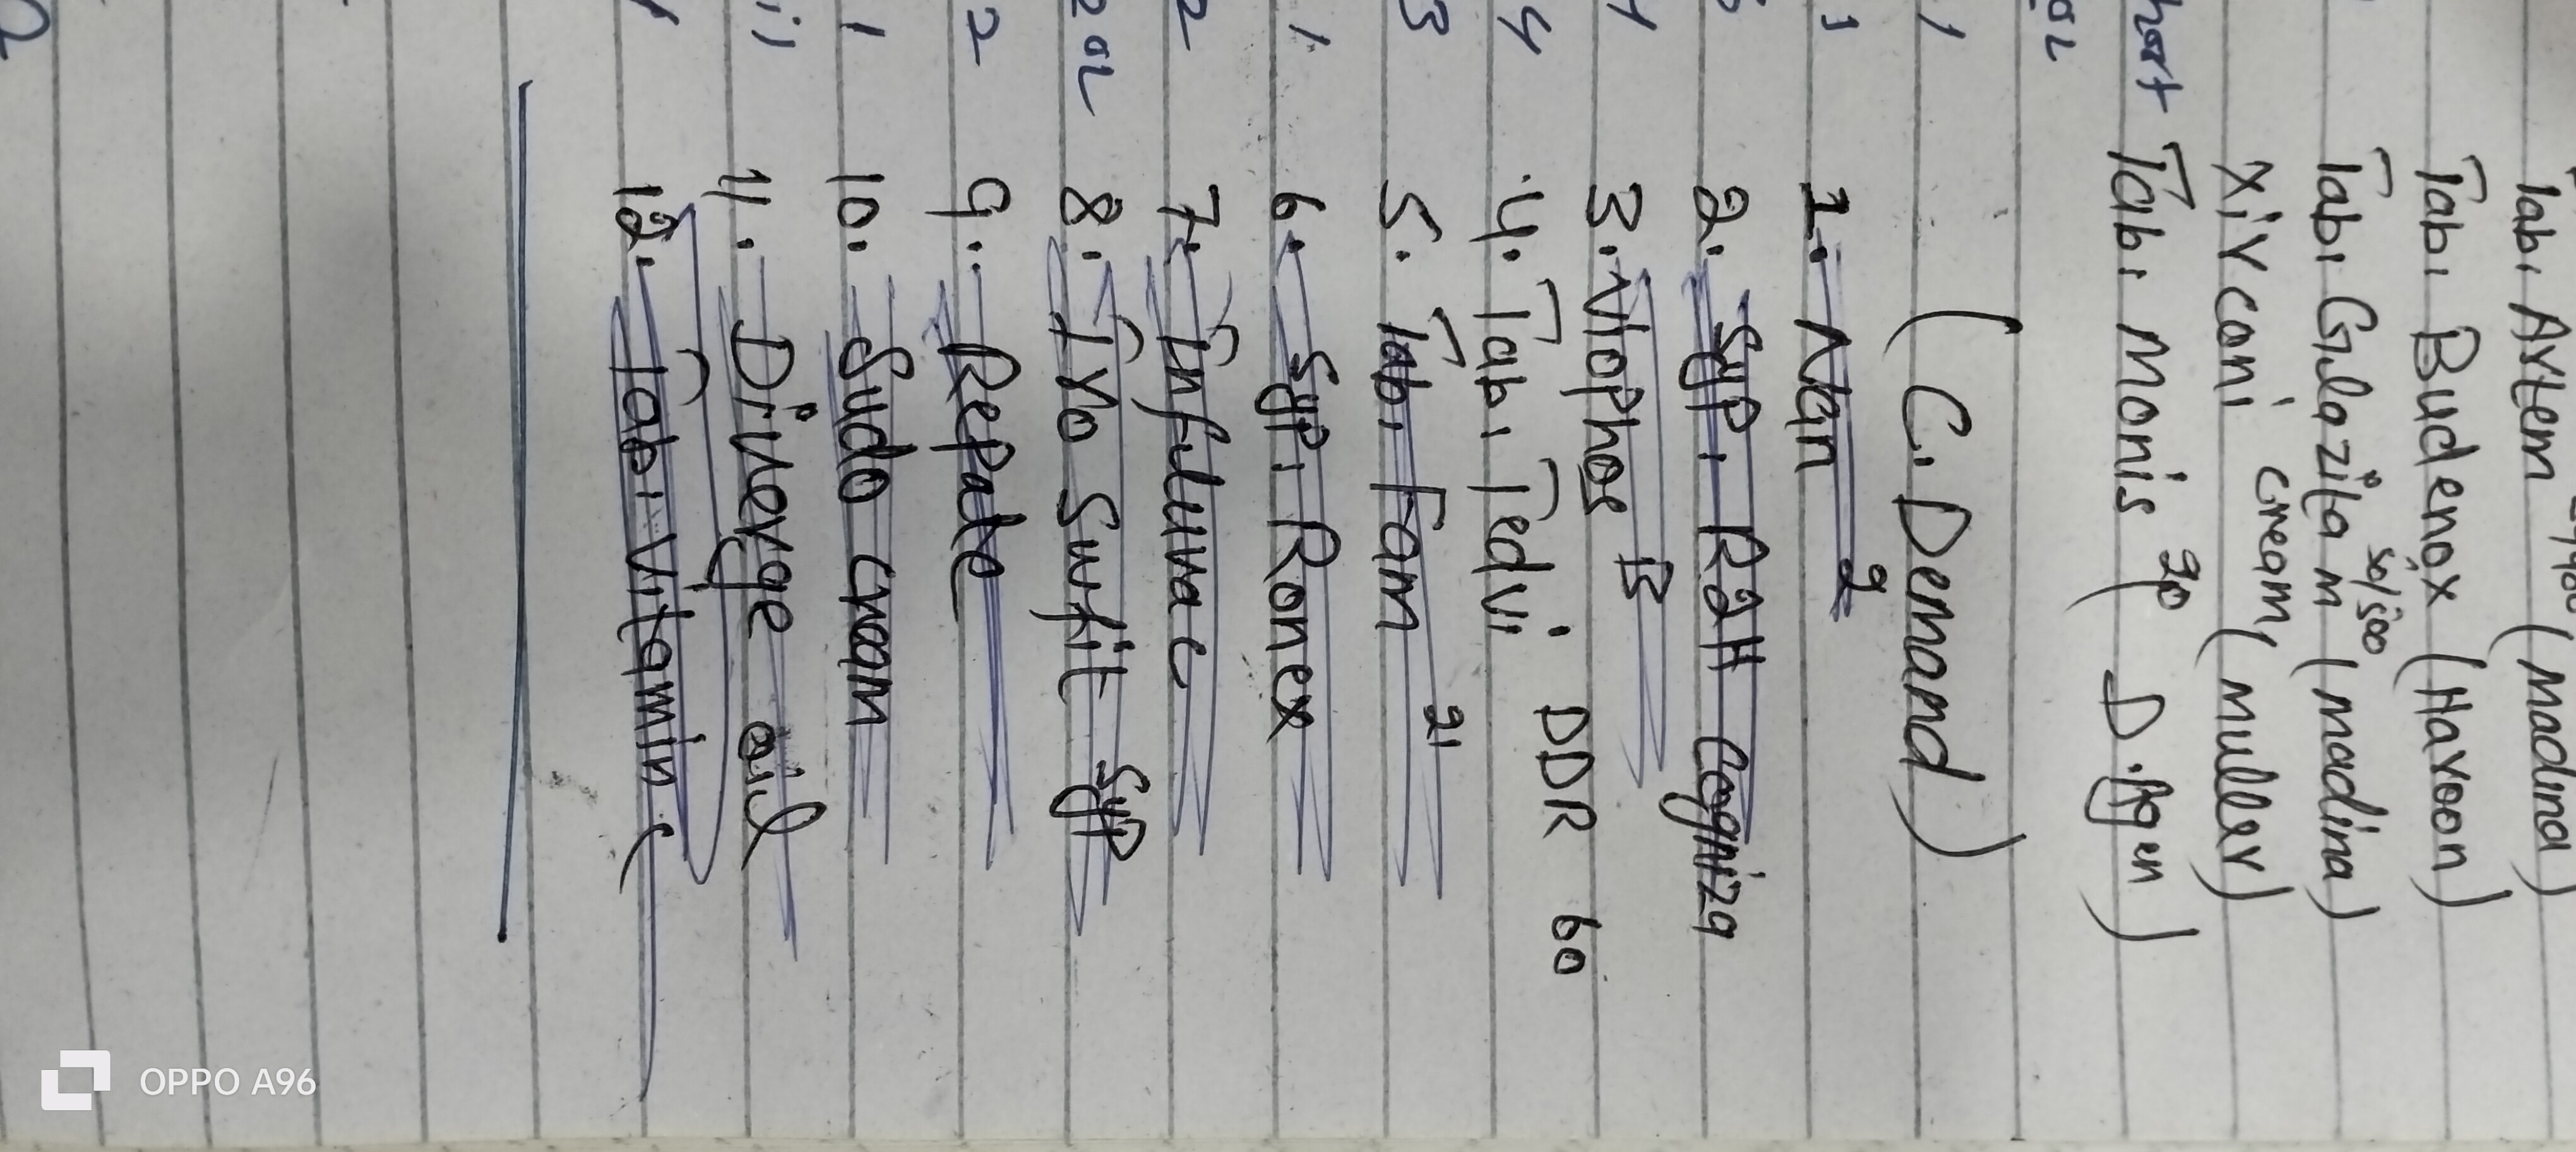 Tab. Artem (madina)
Tab. Budenox (Haroon)
Tab. Gulazila m 50/500 (madina)
Xiv coni cream, (muller)
hort Tab. Monis 20 (D. Agen)
(C. Demand)
1 1. Nan 2
2. Syp. R2H Cogniza
3. Viophos B
4 4. Tab. Tedvi DDR 60
3 5. Tab. Fam 21
1 6. Syp. Ronex
2 7. Infuluvac
8. Tvo Swfit Syp
2 9. Repate
1 10. Sudo cream
11. Diverge oil
1 12. Tab. Vitamin c
OPPO A96